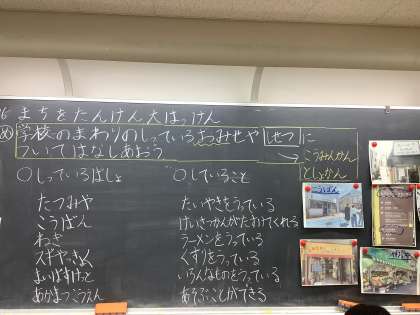 まちをたんけん大はっけん
学校のまわりのしっているおみせや しせつ に
ついてはなしあおう
こうみんかん
としょかん
○しっているばしょ ○していること
たつみや たいやきをうっている
こうばん けいさつかんがたすけてくれる
ラーメンをうっている
スギやっきょく くすりをうっている
いろんなものをうっている
あかまつこうえん あそぶことができる
こうばん